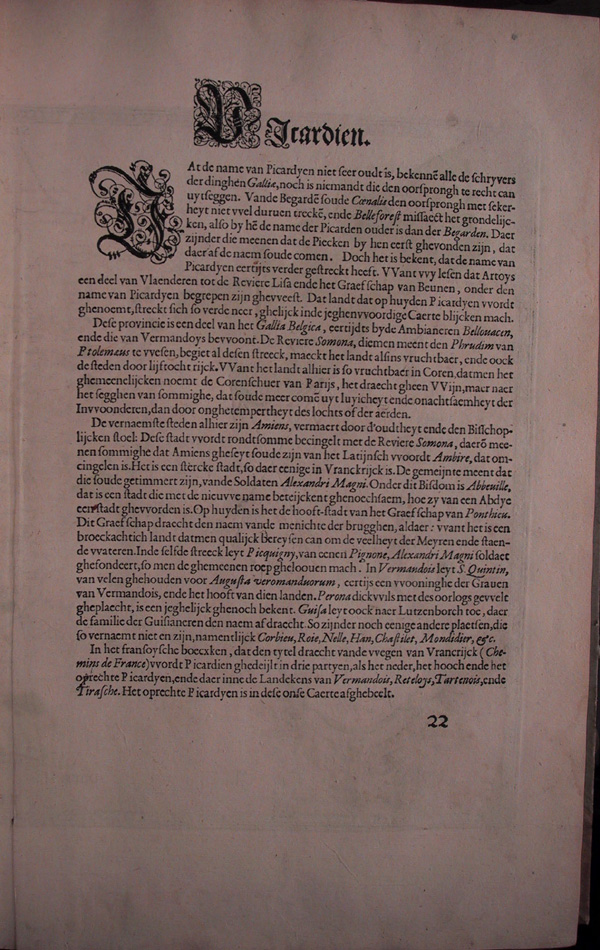 PIcardien.
DAt de name van Picardyen niet seer oudt is, bekennẽ alle de schryvers
der dinghen Galliæ, noch is niemandt die den oorsprongh te recht can
uytseggen. Vande Begardẽ soude Cœnalis den oorsprongh met seker-
heyt niet vvel durven treckẽ, ende Belleforest missaeckt het grondelijc-
ken, also by hẽ de name der Picarden ouder is dan der Begarden. Daer
zijnder die meenen dat de Piecken by hen eerst ghevonden zijn, dat
daer af de naem soude comen. Doch het is bekent, dat de name van
Picardyen eertijts verder gestreckt heeft. VVant vvy lesen dat Artoys
een deel van Vlaenderen tot de Reviere Lisa ende het Graefschap van Beunen, onder den
name van Picardyen begrepen zijn ghevveest. Dat landt dat op huyden Picardyen vvordt
ghenoemt, streckt sich so verde neer, ghelijck inde jeghenvvoordige Caerte blijcken mach.
Dese provincie is een deel van het Gallia Belgica, eertijdts byde Ambianeren Bellouacen,
ende die van Vermandoys bevvoont. De Reviere Somona, diemen meent den Phrudim van
Ptolemæus te vvesen, begiet al desen streeck, maeckt het landt alsins vruchtbaer, ende oock
de steden door lijftocht rijck. VVant het landt alhier is so vruchtbaer in Coren, datmen het
ghemeenelijcken noemt de Corenschuer van Parijs, het draecht gheen VVijn, maer naer
het segghen van sommighe, dat soude meer comẽ uyt luyicheyt ende onachtsaemheyt der
Invvoonderen, dan door onghetempertheyt des lochts of der aerden.
De vernaemste steden alhier zijn Amiens, vermaert door d'oudtheyt ende den Bisschop-
lijcken stoel: Dese stadt vvordt rondtsomme becingelt met de Reviere Somona, daerõ mee-
nen sommighe dat Amiens gheseyt soude zijn van het Latijnsch vvoordt Ambire, dat om-
cingelen is. Het is een stercke stadt, so daer eenige in Vranckrijck is. De gemeijnte meent dat
die soude getimmert zijn, vande Soldaten Alexandri Magni. Onder dit Bisdom is Abbeuille,
dat is een stadt die met de nieuvve name beteijckent ghenoechsaem, hoe zy van een Abdye
een stadt ghevvorden is. Op huyden is het de hooft-stadt van het Graefschap van Ponthieu.
Dit Graefschap draecht den naem vande menichte der brugghen, aldaer: vvant het is een
broeckachtich landt datmen qualijck bereysen can om de veelheyt der Meyren ende staen-
de vvateren. Inde selfde streeck leyt Picquigny, van eenen Pignone, Alexandri Magni soldaet
ghefondeert, so men de ghemeenen roep ghelooven mach. In Vermandois leyt S. Quintin,
van velen ghehouden voor Augusta veromanduorum, eertijs een vvooninghe der Grauen
van Vermandois, ende het hooft van dien landen. Perona dickvvils met des oorlogs gevvelt
gheplaecht, is een jeghelijck ghenoch bekent. Guisa leyt oock naer Lutzenborch toe, daer
de familie der Guisianeren den naem af draecht. So zijnder noch eenige andere plaetsen, die
so vernaemt niet en zijn, namentlijck Corbieu, Roie, Nelle, Han, Chastilet, Mondidier, &c.
In het fransoysche boecxken, dat den tytel draecht vande vvegen van Vrancrijck (Che-
mins de France) vvordt Picardien ghedeijlt in drie partyen, als het neder, het hooch ende het
oprechte Picardyen, ende daer inne de Landekens van Vermandois, Reteloys, Tartenois, ende
Tirasche. Het oprechte Picardyen is in dese onse Caerte afghebeelt.
22